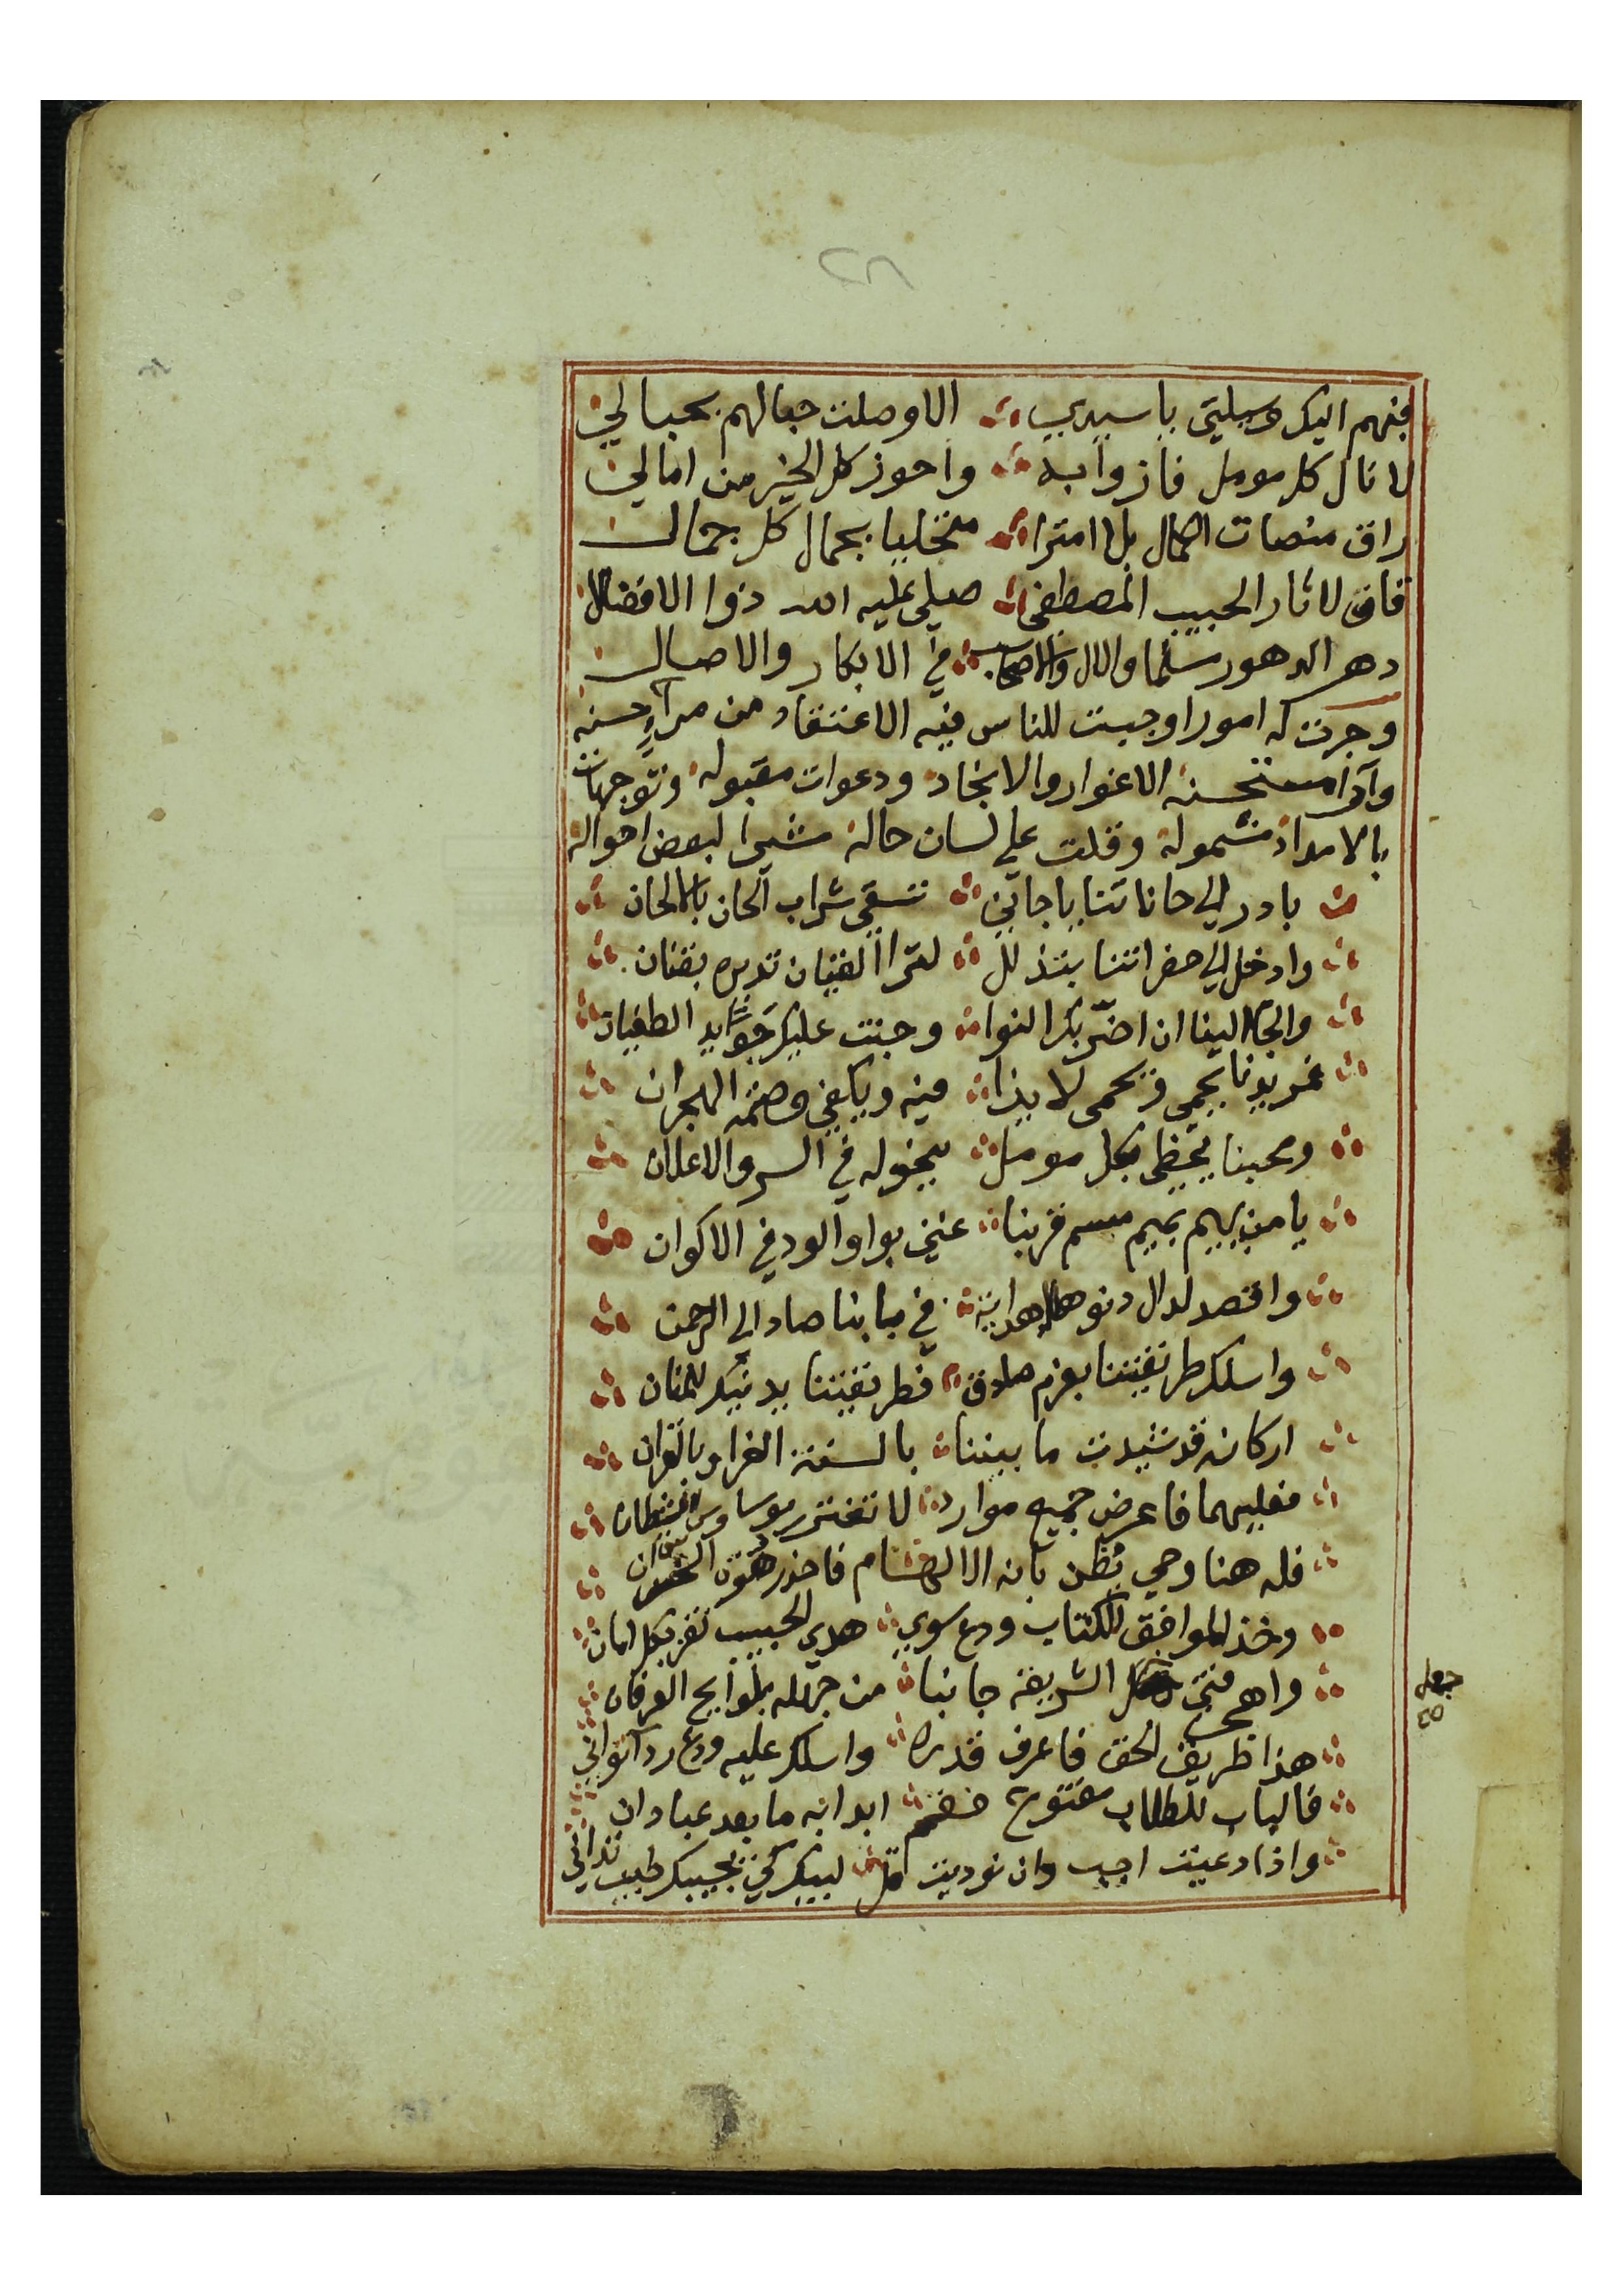 ٢٨
فبهم اليك وسيلتي يا سيدي الا وصلت حبالهم بحبالي
لانال كل مومل فازوا به واحوز كل الخير من امالي
راق منصات الكمال بلا امترا متحليا بجمال كل جمال
قاف لاثار الحبيب المصطفى صلى عليه الله ذوا الافضال
دهر الدهور سلما والال والاصحاب في الابكار والاصال
وجرت له امور اوجبت للناس فيه الاعتقاد من مراء حسنه
وآدا مستحسنه الاغوار والانجاد ودعوات مقبوله وتوجهات
بالامداد مشمولة وقلت على لسان حاله مشيرا لبعض احواله
بادر الى حاناتنا يا جاني تسقى شراب الحان بالالحان
وادخل الى حضراتنا بتذلل لترا الفتيان تدس بفنان
والجا الينا ان اضر بك النوا وجنت عليك شدايد الطغيان
فمريدنا يحمى ويحمى لايذا فيه ويكفى وصمة الهجران
ومحبنا يحظى بكل مومل يبجوله في السر والاعلان
يا من يهيم بميم مبسم قربنا عني بواو الود في الاكوان
واقصد لدال دنو هاء هداية في بابنا صاد الى الرحمن
واسلك طريقتنا بعزم صادق فطريقتنا يدنيك للمنان
اركانه قد شيدت ما بيننا بالسنة الغرا وبالقران
فعليهما فاعرض جميع موارد لا تغترر بوساوس الشيطان
فله هنا وحي يظن بانه الالهام فاحذر هفوة
وخذ الموافق للكتاب ودع سوى هدي الحبيب تفز بكل امان
واهجر فتى الشريعة جانبا من جهله بلوايح العرفان
جعل
هذا طريق الحق فاعرف قدره واسلك عليه ودع ردا التواني
فالباب للطلاب مفتوح ابدا به ما بعد عبادان
واذا دعيت اجب وان نوديت قل لبيك كي تجيبك طيب تداني